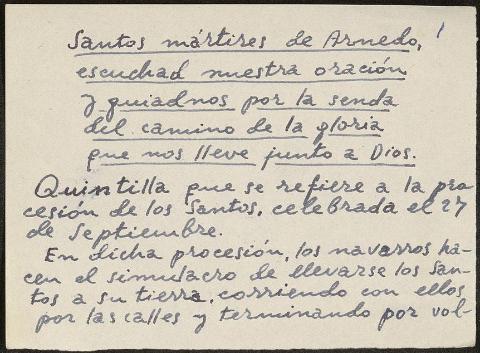 1
Santos mártires de Arnedo,
escuchad nuestra oración
y guiadnos por la senda
del camino de la gloria
que nos lleve junto a Dios.
Quintilla que se refiere a la pro
cesión de los Santos, celebrada el 27
de Septiembre.
En dicha procesión, los navarros ha-
cen el simulacro de llevarse los San-
tos a su tierra, corriendo con ellos
por las calles y terminando por vol-